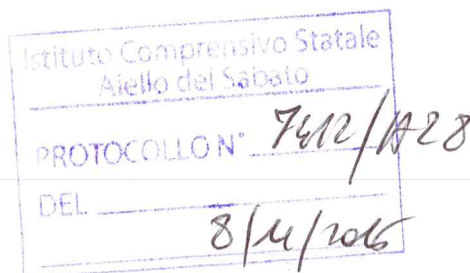 Istituto Comprensivo Statale
Aiello del Sabato
PROTOCOLLO N° 7412/A28
DEL 8/11/2016